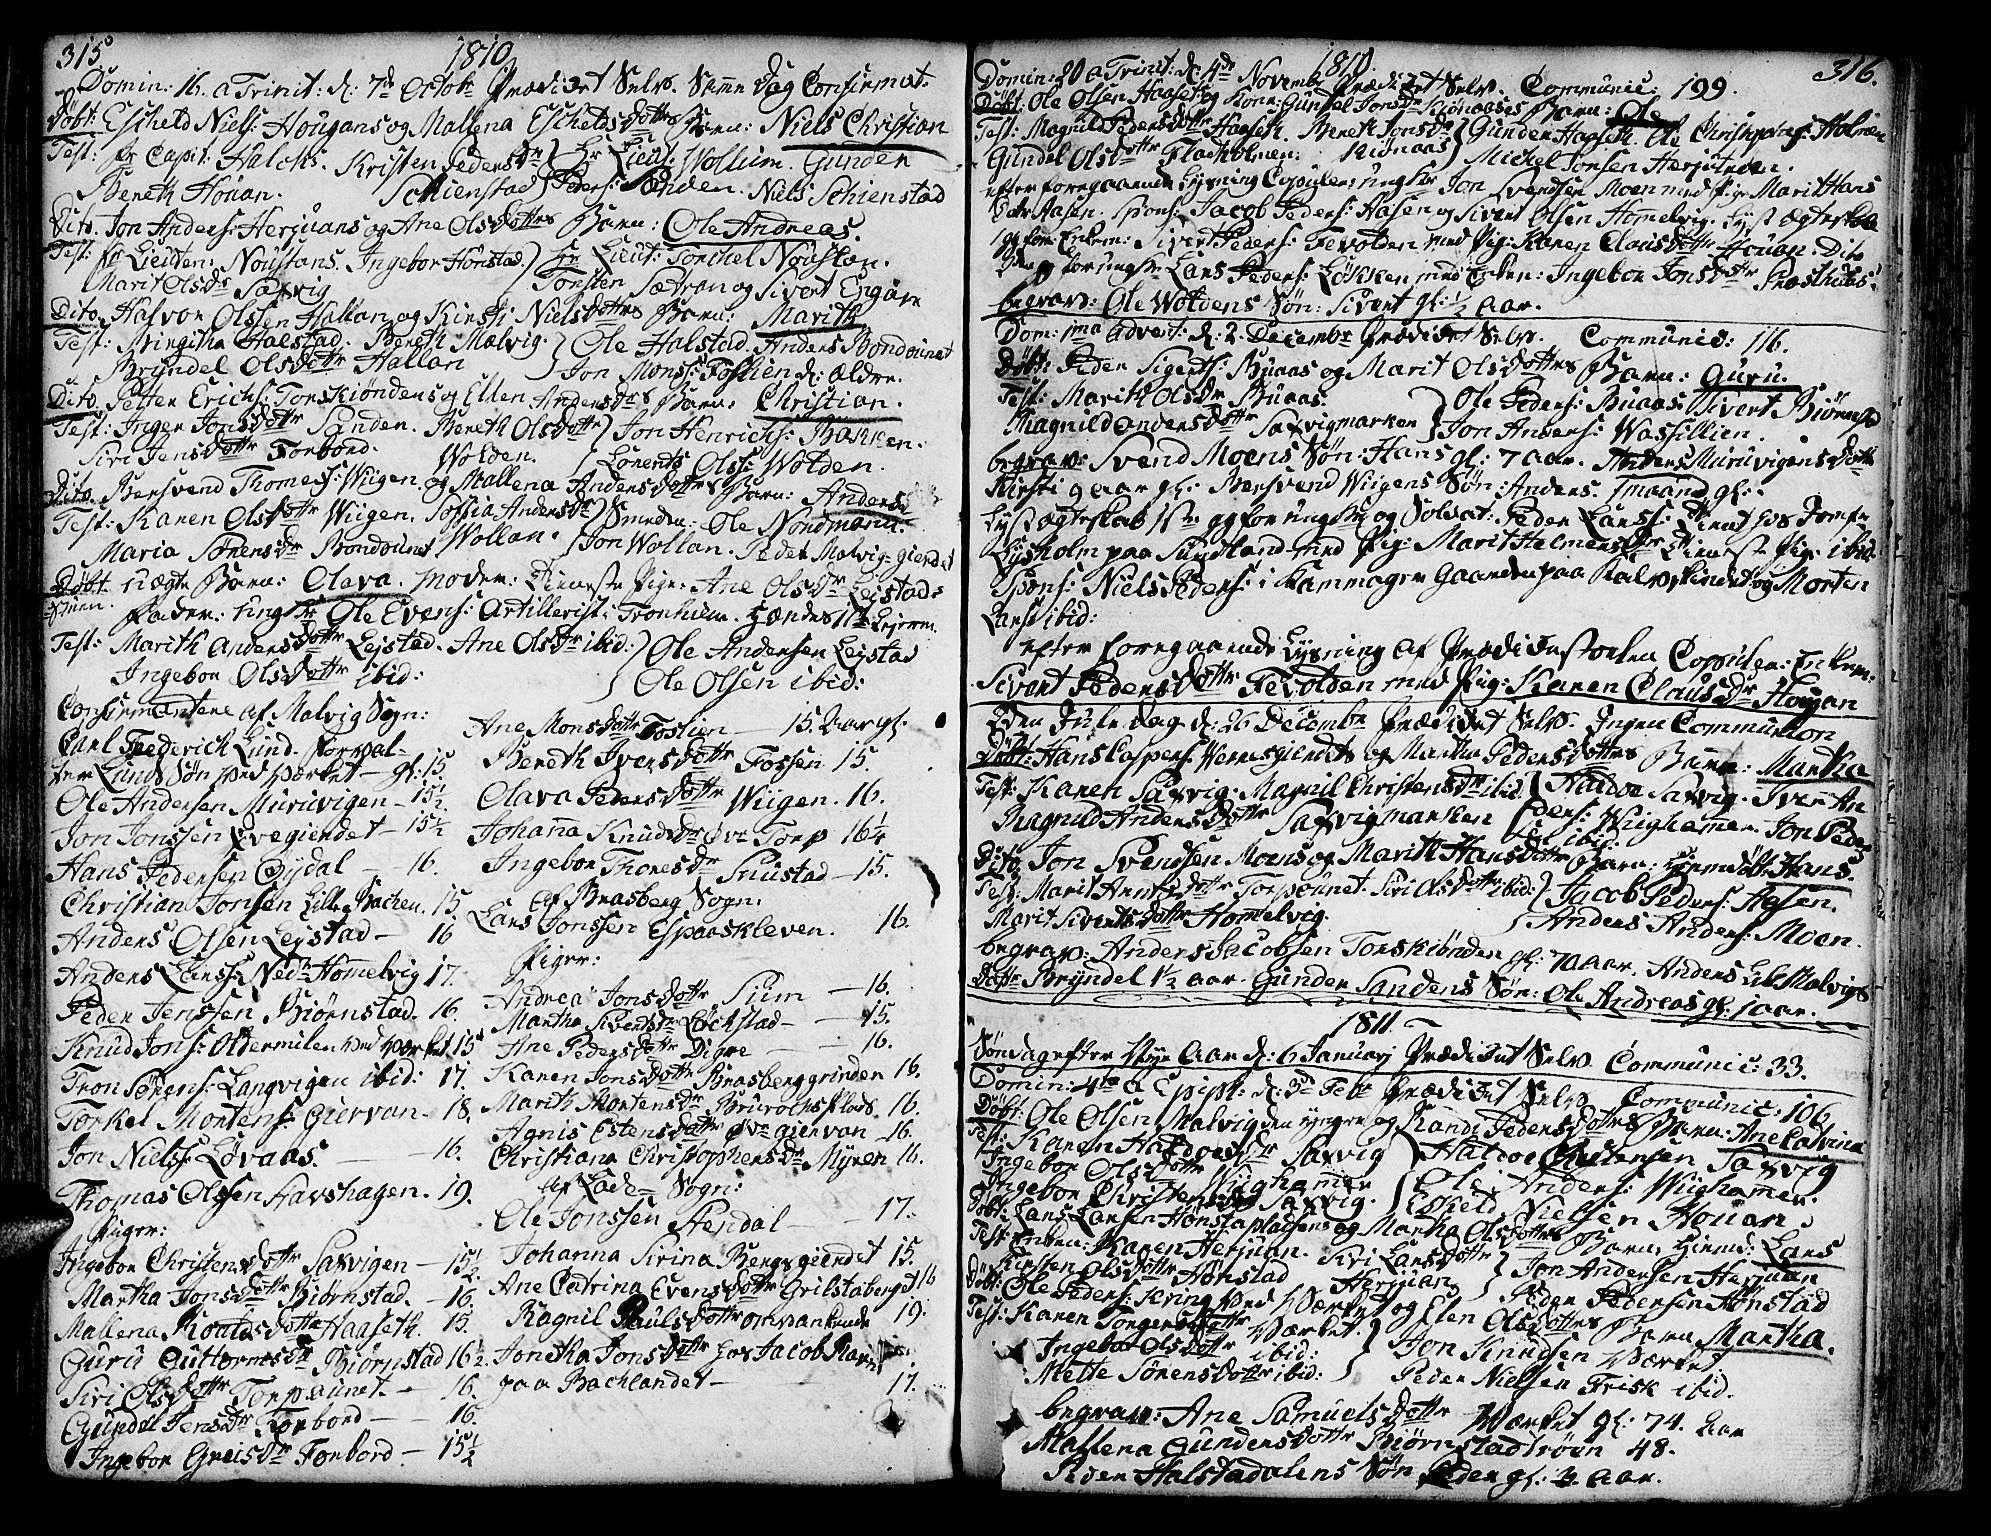 315
1810
Domin: 16. a Trinit: d: 7de Octobr Prædiket Selv. Samme Dag Confirmat.
Døbt: Escheld Niels: Hougans og Mallena Eschelsdottrs Barn: Niels Christian
Test: fr Capit: Halchs. Kristen Pedersdtr Hr Lieut: Wollum. Gunder
Bereth Houan. Schienstad Peder Sanden. Niels Schienstad
Dito Jon Anders: Herjuans og Ane Olsdottrs Barn: Ole Andreas.
Test: fr Lieuten: Noustans. Ingebor Hønstad. Hr Lieut: Torchel Noustan.
Marit Olsdr Saxvig Torsten Sætran og Sivert Engan
Dito Halvor Olsen Hallan og Kirsti Nielsdottrs Barn: Marith
Test: Halstad. Bereth Malvig. Ole Halstad. Anders Bondaunet
Bryndel Olsdottr Hallan Jon Mons: Foslien d: ældre.
Dito Petter Erichs: Torskiøndens og Ellen Andersdrs Barn: Christian.
Test: Inger Jonsdottr Sanden. Bereth Olsdottr Jon Henrichs: Backen.
Siri Jensdottr Forbord. Wolden. Lorents Ols: Wolden.
Dito Bersvend Thomes: Wiigen og Mallena Andersdottrs Barn: Anders
Test: Karen Olsdottr Wiigen. Sophia Andersdr Smeden: Ole Nordmann.
Maria Sørensdr Bondaunet Wollan. Jon Wollan. Peder Malvig-gierdet
Døbt uægte Barn: Olava. Moder: Tieneste Pige: Ane Olsdr Leistad
Fader: ungkr Ole Evens: Artillerist: Tronhiem. hendes 1te Leierm.
Test: Marith Andersdottr Leistad. Ane Olsdr ibid: Ole Andersen Leistad
Ingebor Olsdottr ibid: Ole Olsen ibid:
Confirmantene af Malvig Sogn:
Carl Frederich Lund. Forval-
ter Lunds Søn ved Værket - gl: 15.
Ole Andersen Muruvigen - 15½
Jon Jonssen Qvegierdet - 15½
Hans Pedersen Øydal - 16.
Christian Jonsen Lille Bachen. 15.
Anders Olsen Leistad - 16
Anders Larss: Nedr Homelvig 17.
Peder Jenssen Biørnstad. 16.
Knud Jons: Oldermelen ved Værket 15
Tron Sørens: Langvigen ibid: 17.
Torkel Mortens: Giervan - 18.
Jon Niels: Lovaas. - 16.
Thomas Olssen Havshagen. 19.
Piger:
Ingebor Christensdottr Saxvigen - 15½
Martha Jonsdottr Biørnstad. - 16.
Mallena Roaldsdottr Haaseth. 15.
Guru Guttormsdr Biørnstad 16½
Siri Olsdottr Torpaunet. - 16.
Gundel Jensdr Forbord - 16.
Ingebor Greisdr Forbord - 15½
Ane Monsdottr Foslien - 15. Aar gl.
Bereth Iversdottr Fossen 15.
Olava Pedersdottr Wiigen. 16.
Johana Knudsdr Øvr Torp 16¼
Ingebor Thoresdr Snustad - 15.
Af Brasberg Sogn:
Lars Jonssen Espaaskleven. 16.
Piger:
Andrea Jonsdottr Sum - 16.
Martha Sivertsdr Løckstad - 15.
Ane Pedersdottr Digre - 16.
Karen Jonsdottr Brasberggrinden 16.
Marith Mortensdr Brurochsplads. 16.
Agnis Estensdottr Øvr Giervan - 16.
Christiana Christophersdr Myren 16.
Af Lade Sogn:
Ole Jonssen Stendal - 17.
Johanna Sirina Bergsgierdet 15.
Ane Catrina Evensdottr Grilstaberget 16
Ragnil Paulsdottr omvankende 19.
Jonetha Jonsdottr hos Jacob
paa Bachlandet - 17.
316.
1810.
Domin: 20 a Trinit: d: 4de Novembr Prædiket Selv. Communic: 199.
Døbt: Ole Olsen Haaset og Kone: Gundel Jonsdr Kiønaases Barn: Ole
Test: Magnild Pedersdottr Haaseth. Bereth Jonsdr Gunder Haaseth. Ole Christophers: Holmen
Gundel Olsdottr Fladholmen: Kiønaas Michel Jonsen Herjuerden.
Efter foregaaende Lysning Copulert: ungkr Jon Svendsen Moen med Pig: Marit Hans
Datr Aasen. Spons: Jacob Peders: Aasen og Sivert Olsen Homelvig. Lyst Ægteskab
1 gg for Enkem: Sivert Peders: Fevolden med Pig: Karen Clausdottr Houan. Dito
for ungkr Lars Peders: Løkken med Enken: Ingebor Jonsdottr Præsthuus:
begravd: Ole Woldens Søn: Sivert gl: ½ Aar.
Dom: 1ma Advent: d: 2. Decembr Prædiket Selv. Communic: 116.
Døbt: Peder Sigerts: Buaas og Marit Olsdottrs Barn: Guru.
Test: Marith Olsdr Buaas. Ole Peders: Buaas Sivert Biørnstad
Magnild Andersdottr Saxvigmarken Jon Anders: Wassillien.
begrav: Svend Moens Søn: Hans gl: 7 Aar. Anders Muruvigens Dottr
Kirsti 9 Aar gl: Bersvend Wiigens Søn: Anders. 1 maaned gl:
Lyst Ægteskab 1ste gg for ungkr og Soldat: Peder Larss: Tienest hos Jomfr
Lysholm paa Ladland med Pig: Marit Helmersdr Tieneste Pige ibid.
Spons: Niels Peders: i Kammager Gaarden paa Kalvskindet og Morten
Larss ibid:
Efter foregaaende Lysning af Prædikestolen Copulert: Enkem:
Sivert Pedersdottr Fevolden med Pig: Karen Clausdr Hougan
2den Jule Dag d: 26 Decembr Prædiket Selv. Ingen Communion
Døbt: Hans Caspers: Vernesgierdet og Martha Pedersdottrs Barn: Martha
Test: Karen Saxvig. Magnil Christensdr ibid Haldor Saxvig. Iver An
Ragnild Andersdottr Saxvigmarken ders: Wiighamer. Jon Peder
sen ibid:
Dito Jon Svendsen Moens og Marith Hansdottr Barn: hiemedøbt: Hans.
Test: Marit Arntsdottr Torpaunet. Siri Olsdottr ibid: Jacob Peders: Aasen.
Marit Sivertsdottr Homelvig. Anders Anders: Moen.
begrav: Anders Jacobsen Torskiønden gl: 70 Aar. Anders Lil Malvigs
Dottr Bryndel 1½ Aar. Gunder Sandens Søn: Ole Andreas gl: 1 Aar.
1811.
Søndag efter Nye Aar d: 6 Januarj Prædiket Selv Communic: 33.
Domin: 4ta a Epiph: d: 3de Febr Prædiket Selv Communic: 106
Døbt: Ole Olsen Malvig den yngre og Randi Pedersdottrs Barn: Ane Catrina
Test: Karen Haldosdr Saxvig Haldoe Christensen Saxvig
Ingebor Olsdottr Wiighamer Ole Anders: Wiighamer.
Ingebor Christensdr Saxvig. Eskeld Nielsen Houan.
Døbt: Lars Larsen Hønstaplads og Martha Olsdottrs Barn hiemd: Lars
Test: Enken: Karen Herjuan. Siri Larsdottr Jon Andersen Herjuan
Kirsten Olsdottr Hønstad Herjuan Peder Pedersen Hønstad
Døbt: Ole Peders: Kring ved Værket og Elen Olsdottrs Barn Martha.
Test: Karen Torgersdottr Værket. Jon Knudsen Værket
Ingebor Olsdottr ibid: Peder Nielsen Frisk ibid.
Mette Sørensdottr ibid:
begrav: Ane Samuelsdottr Værket gl: 74. Aar
Mallena Gundersdottr Biørnstadtrøen 48.
Peder Halstadalens Søn Peder gl: 3. Aar.